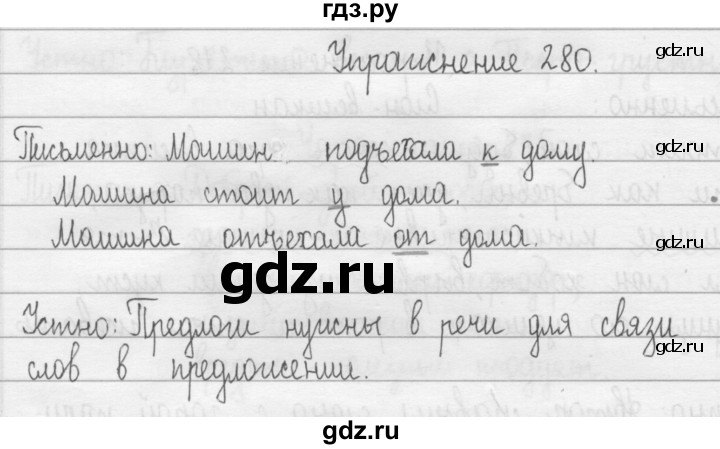 гдз.ру
Упражнение 280.
gdz.ru
Письменно: Машин подъехала к дому
gdz.ru
Машина стоит у дома.
Машина отъехала от дома.
gdz.ru
gdz.ru
Устно: Предлоги нужны в речи для связи
слов в предложении.
gdz.ru
gdz.ru